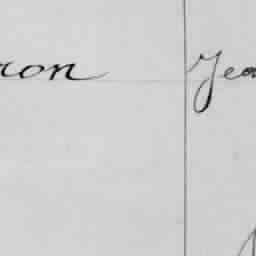 ron Jea